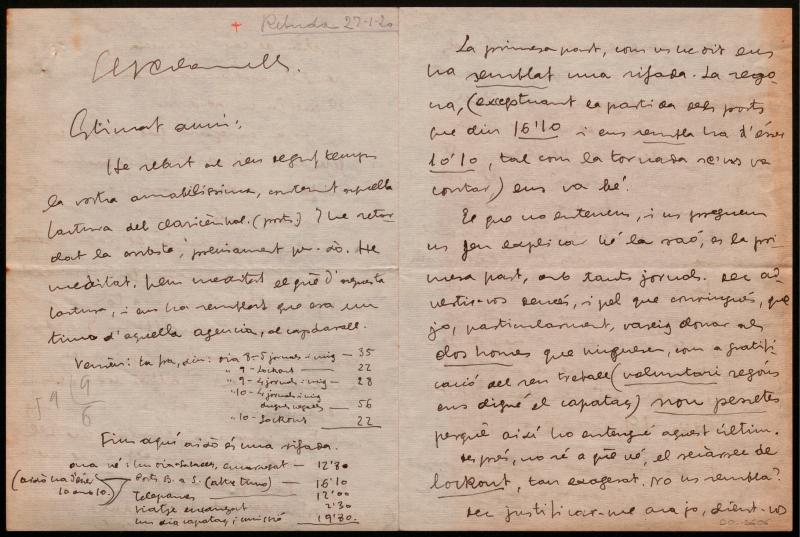 + Rebuda 27-1-20
Estimat amic:
He rebut al seu degut temps
la vostra amabilíssima, contenint aquella
factura del clavicèmbal. (ports) I he retar-
dat la resposta, precisament per-xò. He
meditat, hem meditat el què d'aquesta
factura, i ens ha semblat que era un
timo d'aquella agencia, al capdavall.
Vereu: la fra, diu: dia 8-5 jornals i mig — 35
" 9 - Lockout — 22
" 9 - 4 jornals i mig — 28
" 10 - 4 jornals i mig
— 56
" 10 - Lockout — 22
Fins aquí això és una rifada.
ara vé: Un dia — 12'80
(això ha d'ésser 10 ano 10.) Ports B. a S. (altre timo) — 16'10
Telefonemes — 12'00
viatge encarregat — 2'30
un dia capataç i comissió — 19'80
59 9
6
La primera part, com us he dit ens
ha semblat una rifada. La sego-
na, (exceptuant la partida dels ports
que diu 16'10 i ens sembla ha d'ésser
10'10, tal com la tornada se'ns va
contar) ens va bé.
El que no entenem, i us preguem
us feu explicar bé la raó, es la pri-
mera part, amb tants jornals. Dec ad-
vertir-vos també, i pel que convingués, que
jo, particularment, vareig donar als
dos homes que vingueren, com a gratifi-
cació del seu treball (voluntari segons
ens digué el capataç) nou pessetes
perquè així ho entengué aquest últim.
Després, no sé a què vé, el
lockout, tan exagerat. No us sembla?
Dec justificar-me ara jo, dient-vos